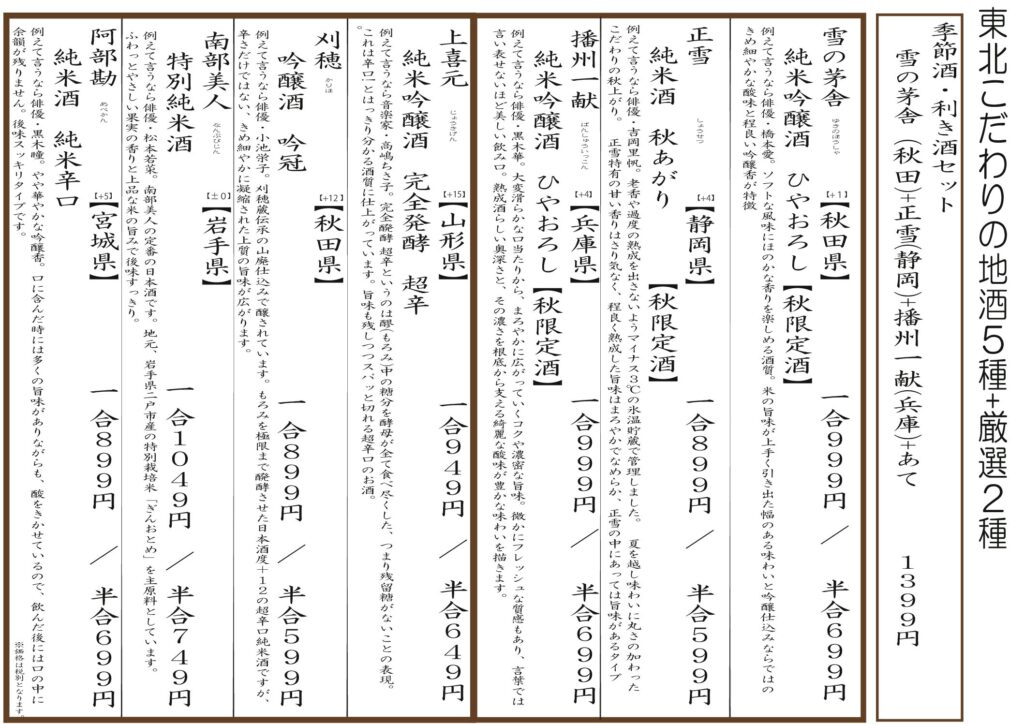 東北こだわりの地酒5種+厳選2種
季節酒・利き酒セット
雪の茅舎(秋田)+正雪(静岡)+播州一献(兵庫)+あて 1399円
雪の茅舎 ゆきのぼうしゃ 【+1】【秋田県】 一合999円 / 半合699円
純米吟醸酒 ひやおろし【秋限定酒】
例えて言うなら俳優・橋本愛。ソフトな風味にほのかな香りを楽しめる酒質。米の旨味が上手く引き出た幅のある味わいと吟醸仕込みならではの
きめ細やかな酸味と程良い吟醸香が特徴
正雪 しょうせつ 【+4】【静岡県】 一合899円 / 半合599円
純米酒 秋あがり 【秋限定酒】
例えて言うなら俳優・吉岡里帆。老香や過度の熟成を出さないようマイナス3℃の氷温貯蔵で管理しました。 夏を越し味わいに丸さの加わった
こだわりの秋上がり。 正雪特有の甘い香りはさり気なく、程良く熟成した旨味はまろやかでなめらか、正雪の中にあっては旨味があるタイプ
播州一献 ばんしゅういっこん 【+4】【兵庫県】 一合999円 / 半合699円
純米吟醸酒 ひやおろし【秋限定酒】
例えて言うなら俳優、黒木華。大変滑らかな口当たりから、まろやかに広がっていくコクや濃密な旨味。微かにフレッシュな質感もあり、言葉では
言い表せないほど美しい飲み口。熟成酒らしい奥深さと、その濃さを根底から支える綺麗な酸味が豊かな味わいを描きます。
上喜元 じょうきげん 【+15】【山形県】 一合949円 / 半合649円
純米吟醸酒 完全発酵 超辛
例えて言うなら音楽家・高嶋ちさ子。完全醗酵 超辛というのは醪(もろみ)中の糖分を酵母が全て食べ尽くした、つまり残留糖がないことの表現。
これは辛口!とはっきり分かる酒質に仕上がっています。旨味も残しつつスパッと切れる超辛口のお酒。
刈穂 かりほ 【+12】【秋田県】 一合899円 / 半合599円
吟醸酒 吟冠
例えて言うなら俳優・小池栄子。刈穂蔵伝承の山廃仕込みで醸されています。もろみを極限まで醗酵させた日本酒度+12の超辛口純米酒ですが、
辛さだけではない、きめ細やかに凝縮された上質の旨味が広がります。
南部美人 なんぶびじん 【±0】【岩手県】 一合1049円 / 半合749円
特別純米酒
例えて言うなら俳優・松本若菜。南部美人の定番の日本酒です。地元、岩手県二戸市産の特別栽培米「ぎんおとめ」を主原料としています。
ふわっとやさしい果実の香りと上品な米の旨みで後味すっきり。
阿部勘 あべかん 【+5】【宮城県】 一合899円 / 半合699円
純米酒 純米辛口
例えて言うなら俳優・黒木瞳。やや華やかな吟醸香。口に含んだ時には多くの旨味がありながらも、酸をきかせているので、飲んだ後には口の中に
余韻が残りません。後味スッキリタイプです。
※価格は税別となります。